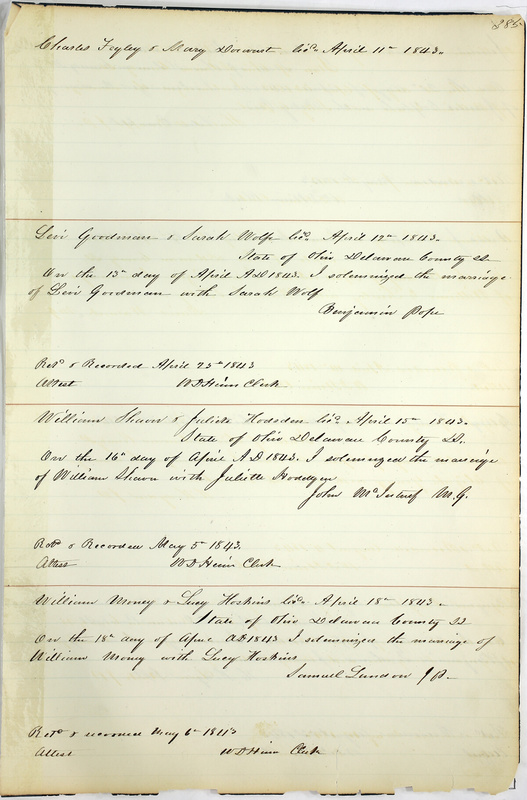 285
Charles Fegley & Mary Dorwart Licd. April 11th 1843.
Levi Goodman & Sarah Wolfe Licd. April 12th 1843.
State of Ohio Delaware County SS
On the 13th day of April AD 1843. I solemnized the marriage
of Levi Goodman with Sarah Wolf
Benjamin Pope
Retd & Recorded April 25th 1843
Attest W D Heim Clerk
William Shawn & Juliette Hodsden Licd. April 15th 1843.
State of Ohio Delaware County SS.
On the 16th day of April AD 1843. I solemnized the marriage
of William Shawn with Juliette Hodgen
John Mc M.G.
Retd & Recorded May 5th 1843.
Attest W D Heim Clerk
William Money & Lucy Hoskins Licd. April 18th 1843.
State of Ohio Delaware County SS
On the 18th day of April AD 1843 I solemnized the marriage of
William Money with Lucy Hoskins
Samuel Landon J P.
Retd & recorded May 6th 1843
Attest W D Heim Clerk